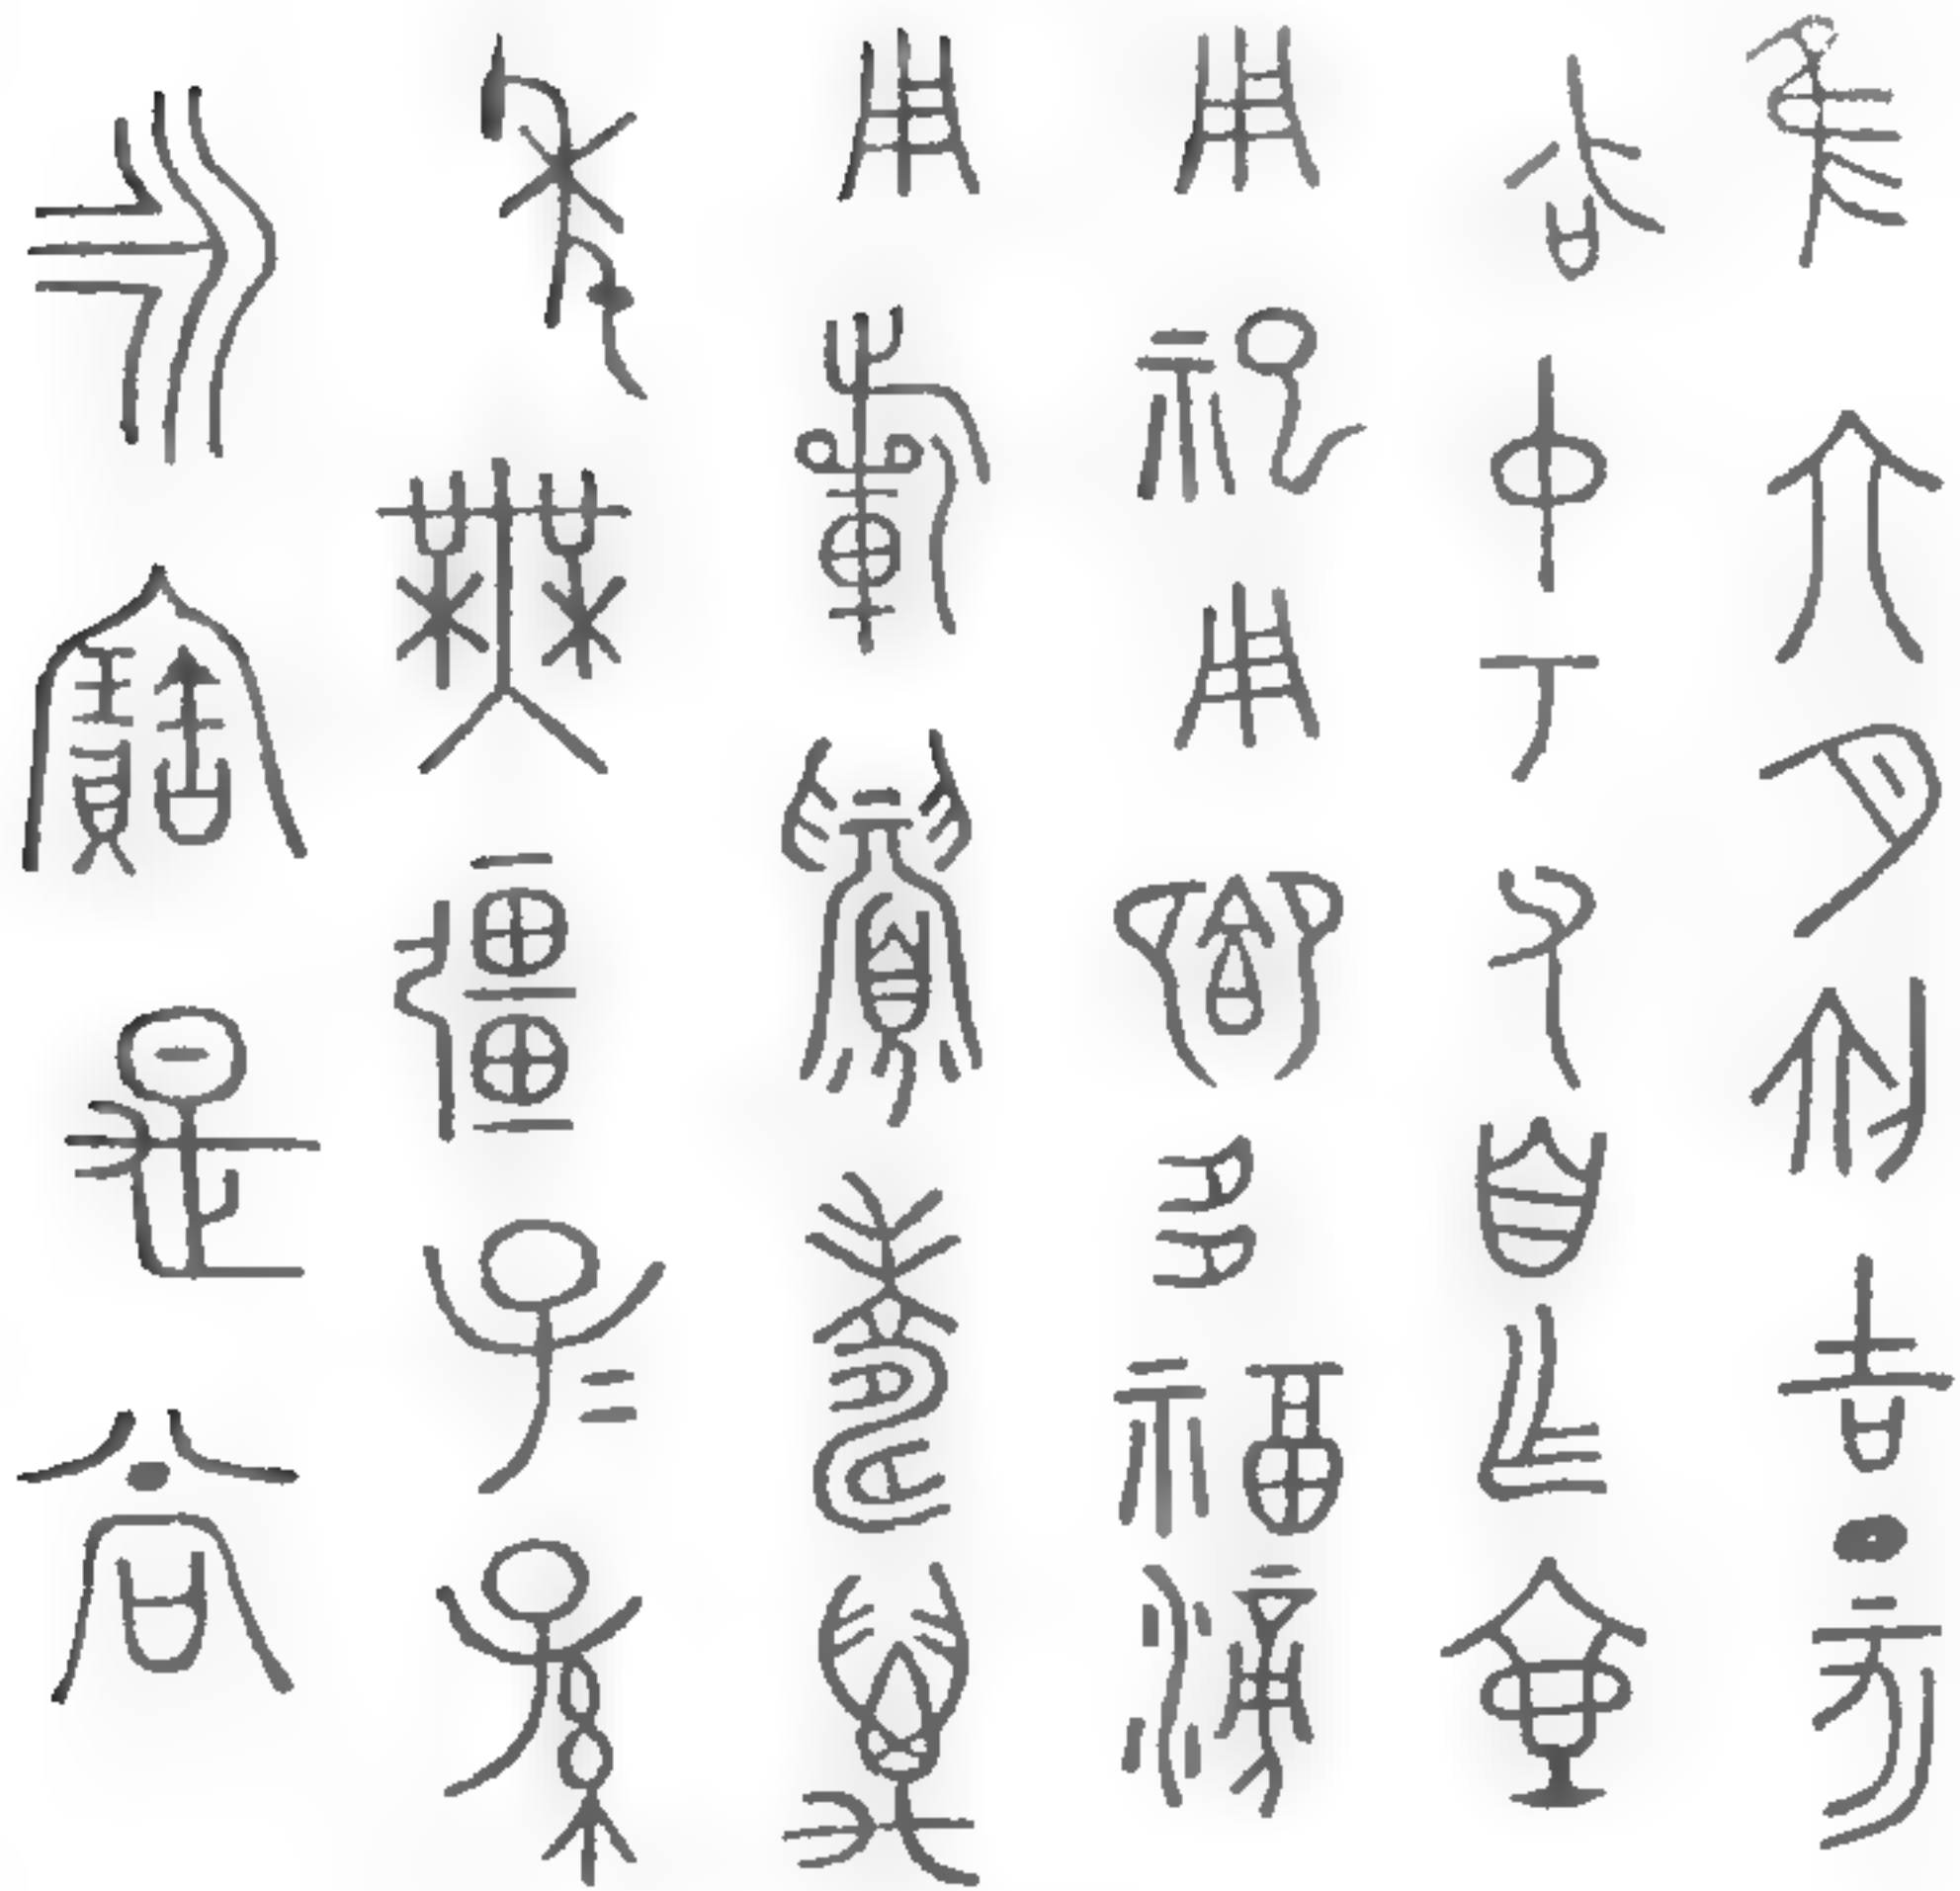 隹六月初吉丁亥
冶中丂父自乍壺
用祀用鄉多福滂
用祈眉壽萬
年無彊子＝孫
永寶是尚